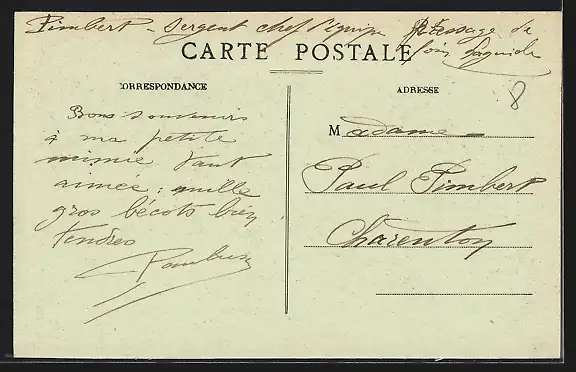 Pimbert - sergent chef l'équipe Pressage de
foin
CARTE POSTALE
CORRESPONDANCE
ADRESSE
8
Bons souvenirs
à ma petite
mimie tant
aimée ; mille
gros bécots bien
tendres
Madame
Paul Pimbert
Charenton